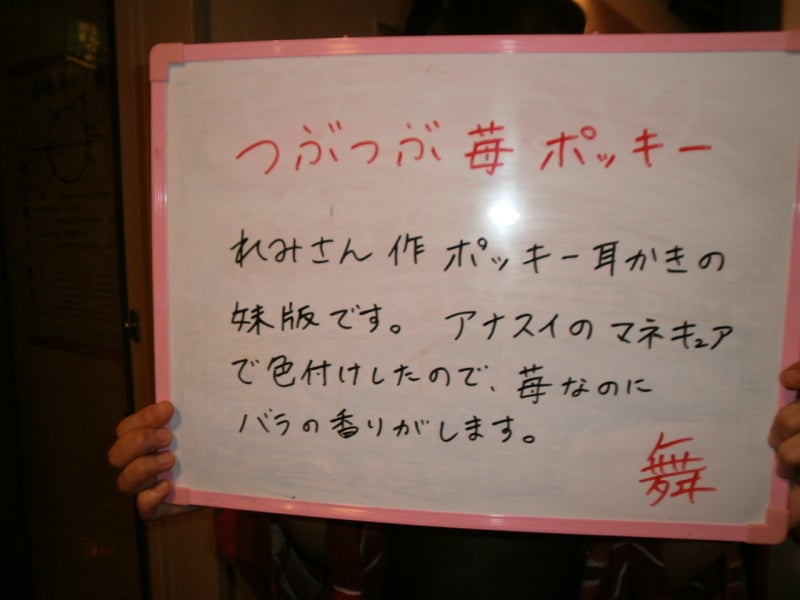 つぶつぶ苺ポッキー
れみさん作 ポッキー耳かきの
妹版です。 アナスイのマネキュア
で色付けしたので、苺なのに
バラの香りがします。
舞